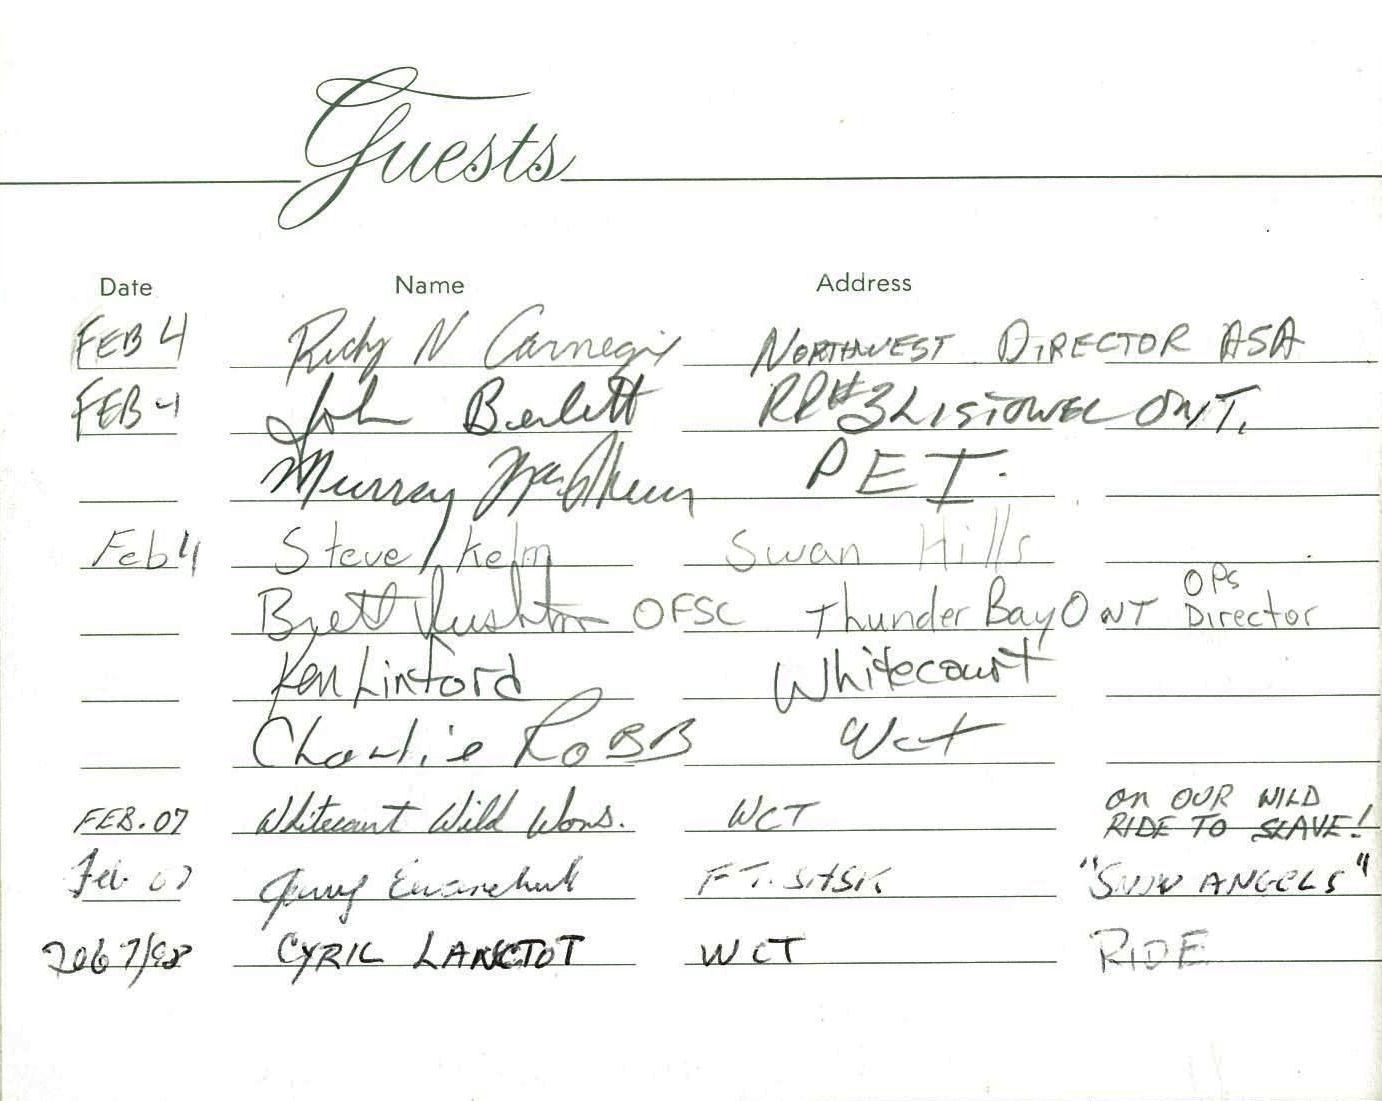 Guests
Date Name Address
FEB 4 Ricky N Carnegie NORTHWEST DIRECTOR ASA
FEB 4 John RR#3 LISTOWEL ONT.
Murray P E I.
Feb 4 Steve Kelm Swan Hills
Brett Rushton OFSC Thunder Bay ONT OPs Director
Ken Linford Whitecourt
Charlie ROBB Wct
FEB. 07 Whitecourt Wild Wons. WCT ON OUR WILD
RIDE TO SLAVE!
Feb 07 FT. SASK. "SNOW ANGELS"
Feb 7/98 CYRIL LANCTOT WCT RIDE